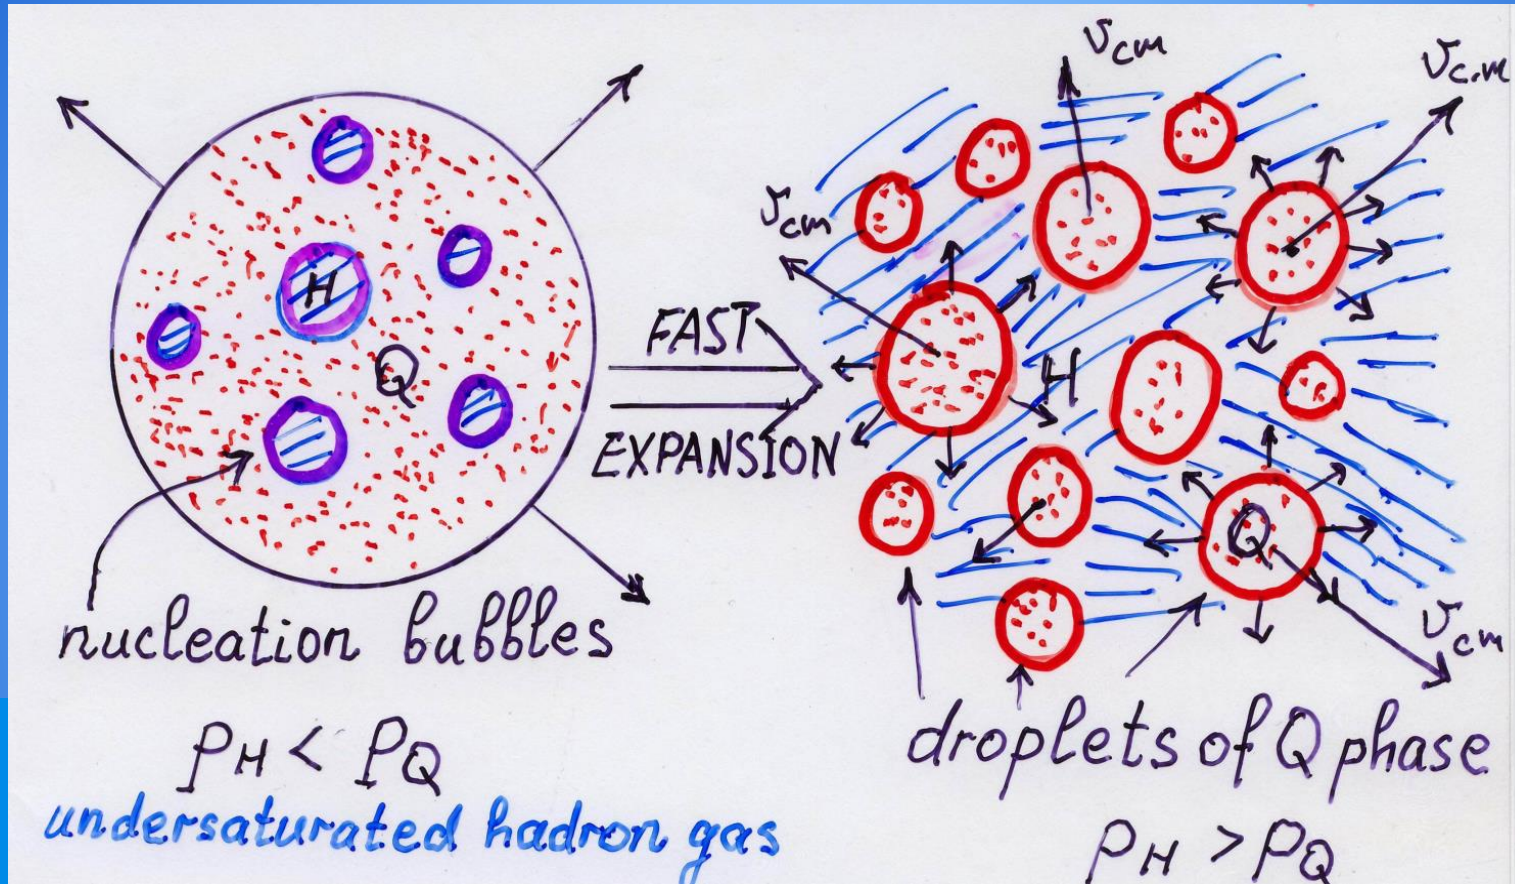 H
Q
nucleation bubbles
pH < pQ
undersaturated hadron gas
FAST
EXPANSION
vcm
vc.m
vcm
H
Q
vcm
droplets of Q phase
pH > pQ